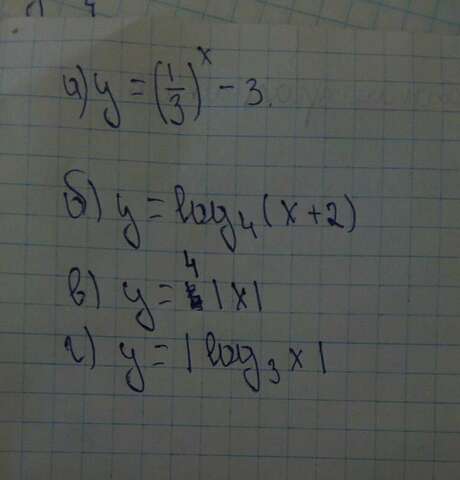 а) y = (1/3)^x - 3.
б) y = log₄(x+2)
в) y = 4|x|
г) y = |log₃x|